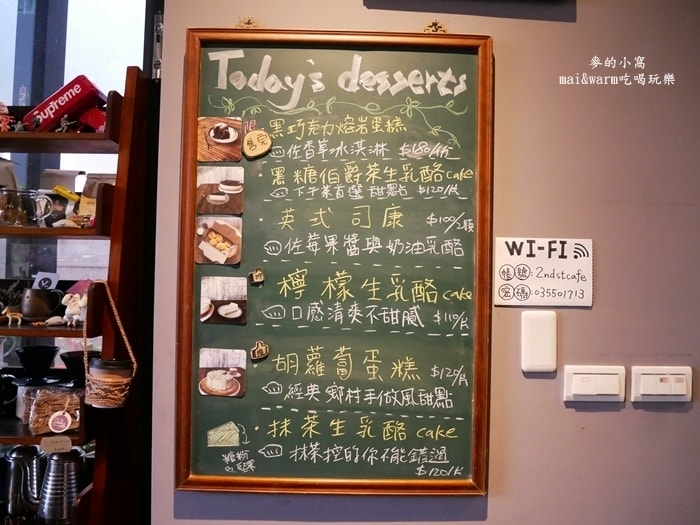 麥的小窩
mai&warm吃喝玩樂
Supreme
Today's desserts
限
售完
黑巧克力熔岩蛋糕
佐香草冰淇淋 $180/份
黑糖伯爵茶生乳酪cake
下午茶首選甜點 $120/片
·英式司康 $100/2顆
佐莓果醬與奶油乳酪
·檸檬生乳酪cake
口感清爽不甜膩 $110/片
·胡蘿蔔蛋糕 $120/片
經典鄉村手做風甜點
·抹茶生乳酪cake
抹茶控的你不能錯過
$120/片
WI-FI
帳號:2ndstcafe
密碼:035501713